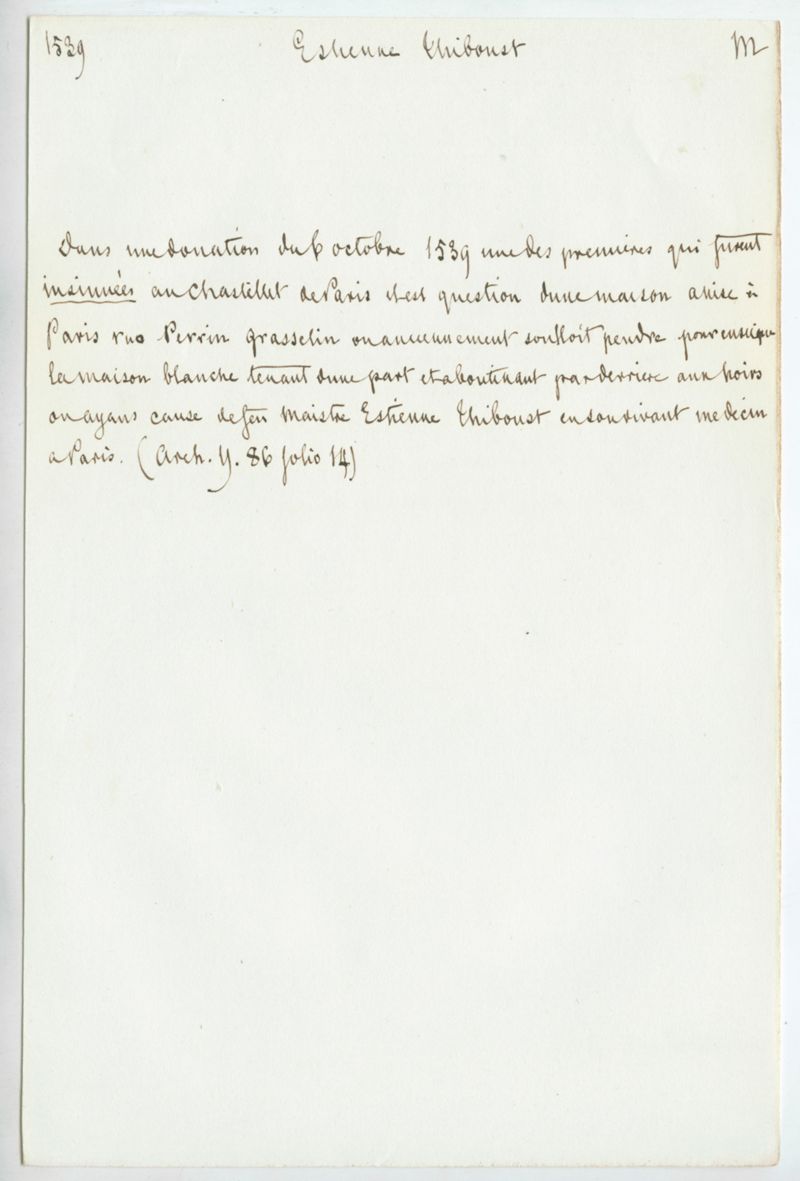 1539 Estienne Thiboust M
Dans une donation du 6 octobre 1539 une des premieres qui furent
insinuées au Chastellet de Paris il est question dune maison assise à
Paris rue Perrin Grasselin ou anciennement soulloit pendre pour enseigne
la maison blanche tenant dune part et aboutissant par derriere aux hoirs
ou ayans cause de feu Maistre Estienne Thiboust en son vivant medecin
a Paris. (Arch. Y. 86 folio 14)